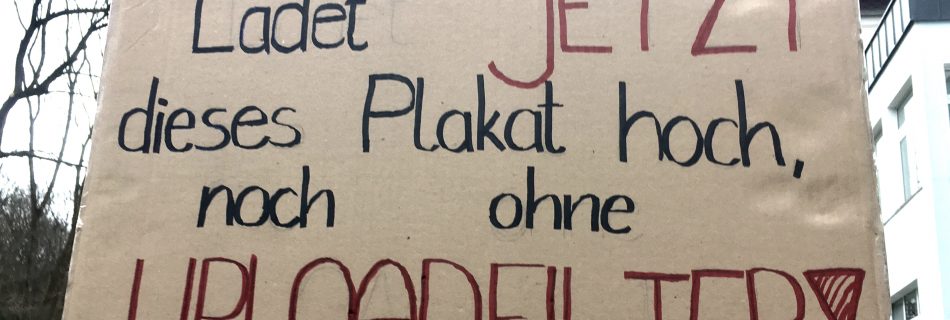 Ladet JETZT
dieses Plakat hoch,
noch ohne
UPLOADFILTER!